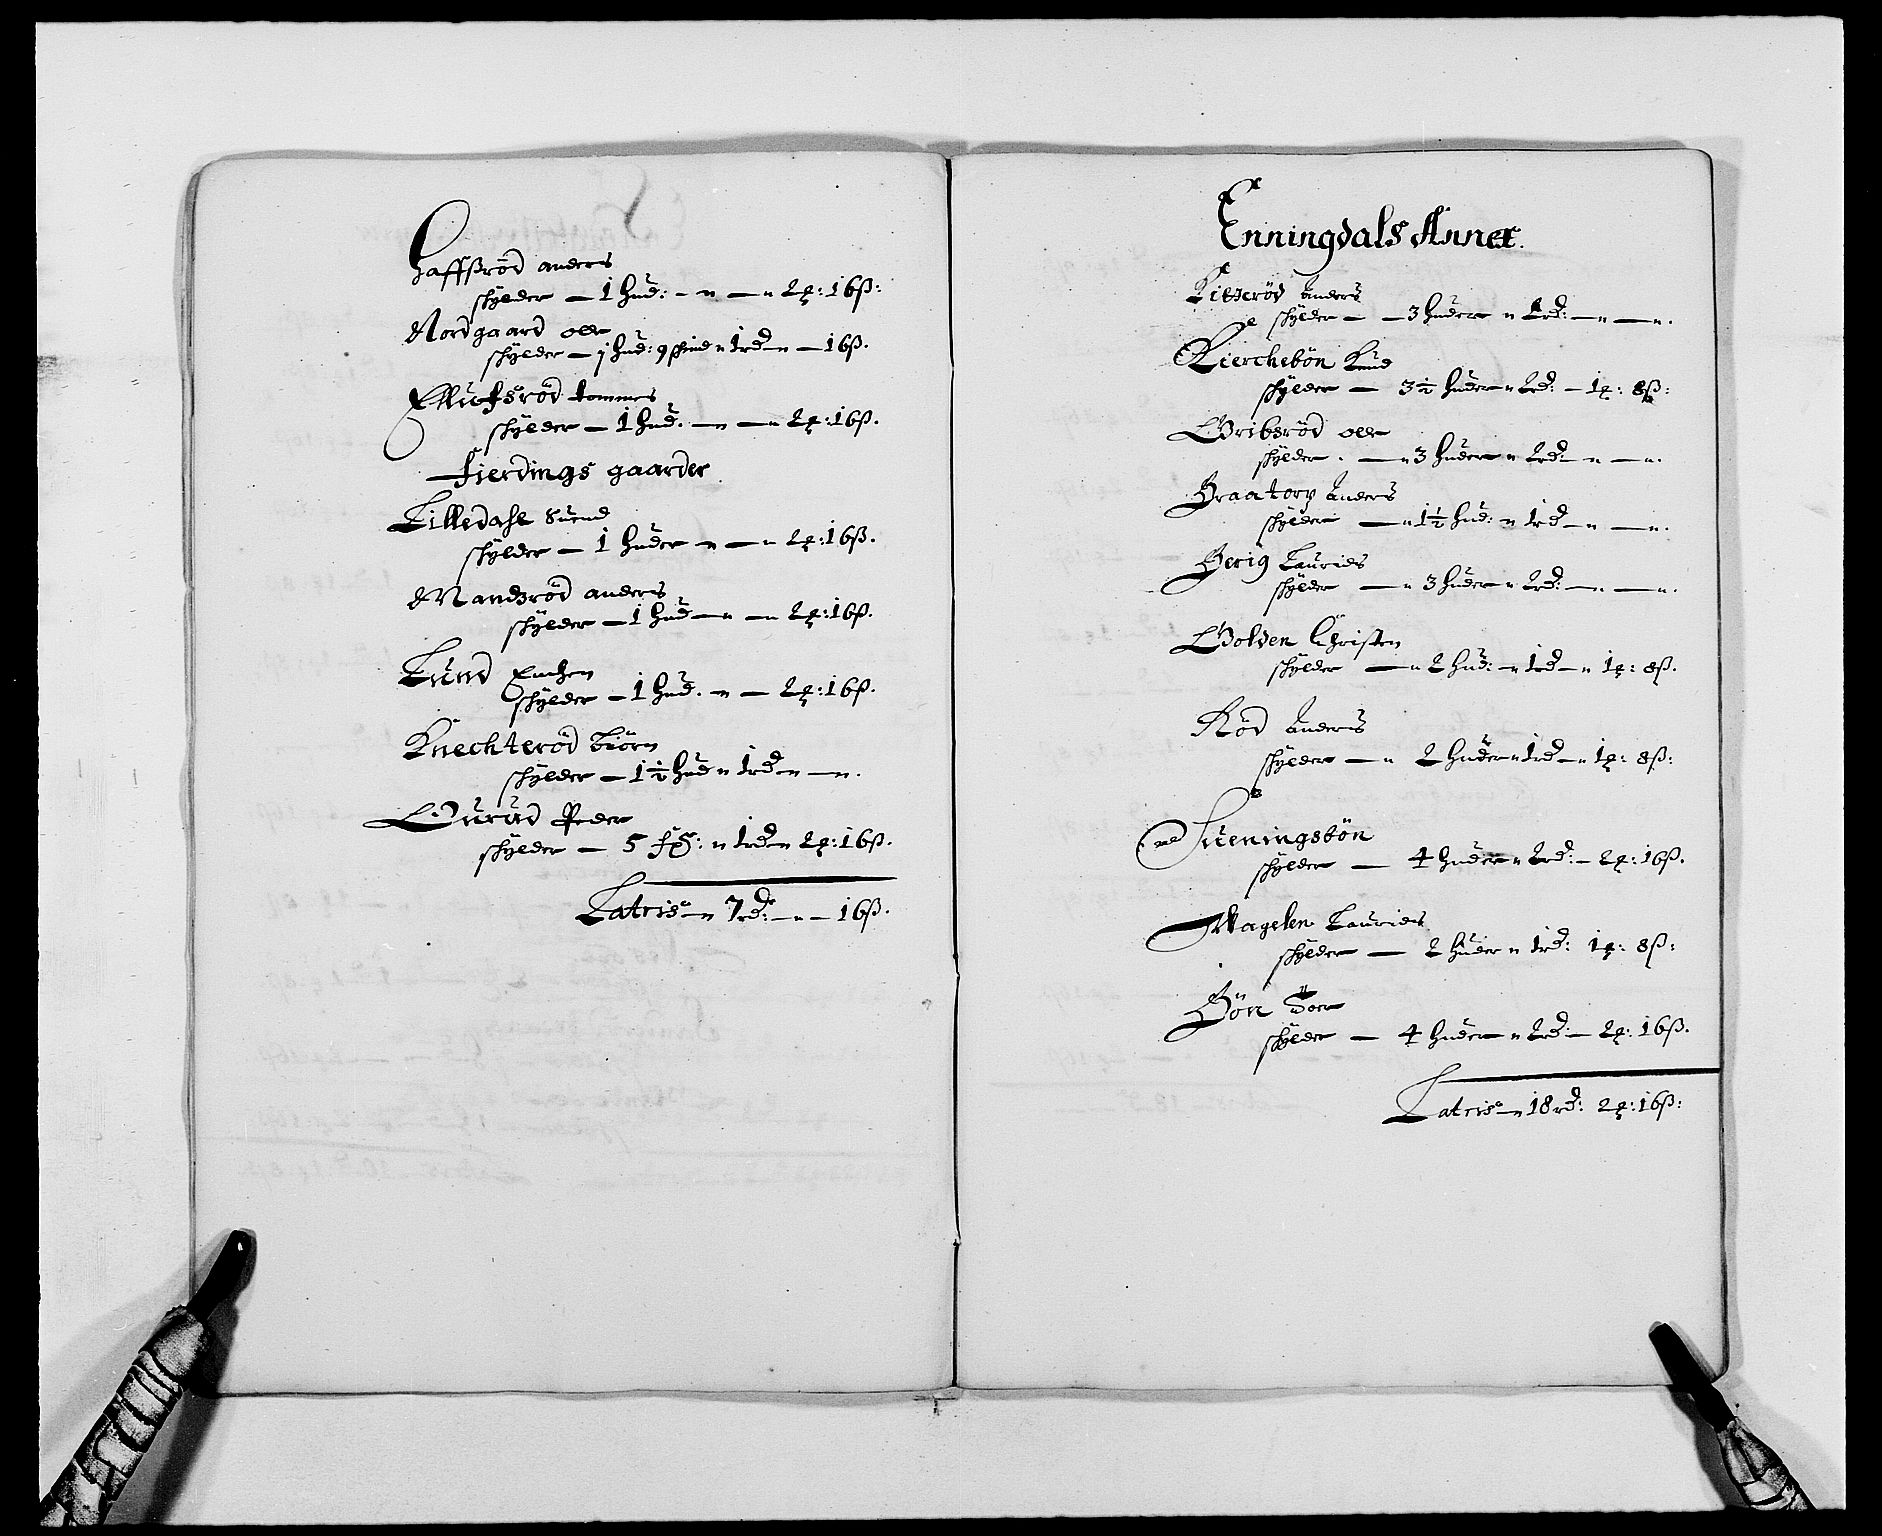 Haffßröd anders
skÿlder — 1 hud: - " — " 2 ꝗ: 16 ß:
Nordgaard oller
skÿlder — 1 hud: 9 skind " 1 rd — " — 16 ß.
Elluefsröd tommes
skÿlder — 1 hud. — " — " 2 ꝗ: 16 ß.
Fierdings gaarder
Lilledahl Suend
skÿlder — 1 huder — " — " 2 ꝗ: 16 ß.
Mandzröd anders
skÿlder — 1 hud — " — " 2 ꝗ: 16 ß.
Lund
skÿlder — 1 hud. — " — 2 ꝗ: 16 ß.
Knechteröd Biörn
skÿlder — 1½ hud " 1 rd — " — ".
Peder
skÿlder — 5 : " 1 rd — " 2 ꝗ: 16 ß.
Latris — " 7 rd: — " — 16 ß.
Enningdals Annex.
Kitzeröd Anders
skÿlder — — 3 huder " 2 rd: — " — ".
Kierchebön Knud
skÿlder — 3½ huder " 2 rd: — 1 ꝗ: 8 ß:
Gribsröd oller
skÿlder . — " 3 huder " 2 rd: — " — ".
Braatorp Anders
skÿlder — " 1½ hud: " 1 rd — " — ".
Berig Laurids
skÿlder — " 3 huder " 2 rd: — " — ".
Holden Christen
skÿlder — " 2 hud: — " 1 rd — " 1 ꝗ: 8 ß.
Röd Anders
skÿlder — " 2 huder " 1 rd — " 1 ꝗ: 8 ß:
Sueningsbön
skÿlder — 4 huder " 2 rd: — 2 ꝗ: 16 ß.
Magelen Laurids
skÿlder — 2 huder " 1 rd: 1 ꝗ: 8 ß:
Bön Toer
skÿlder — 4 huder " 2 rd: — 2 ꝗ: 16 ß.
Latris — " 18 rd: 2 ꝗ: 16 ß: